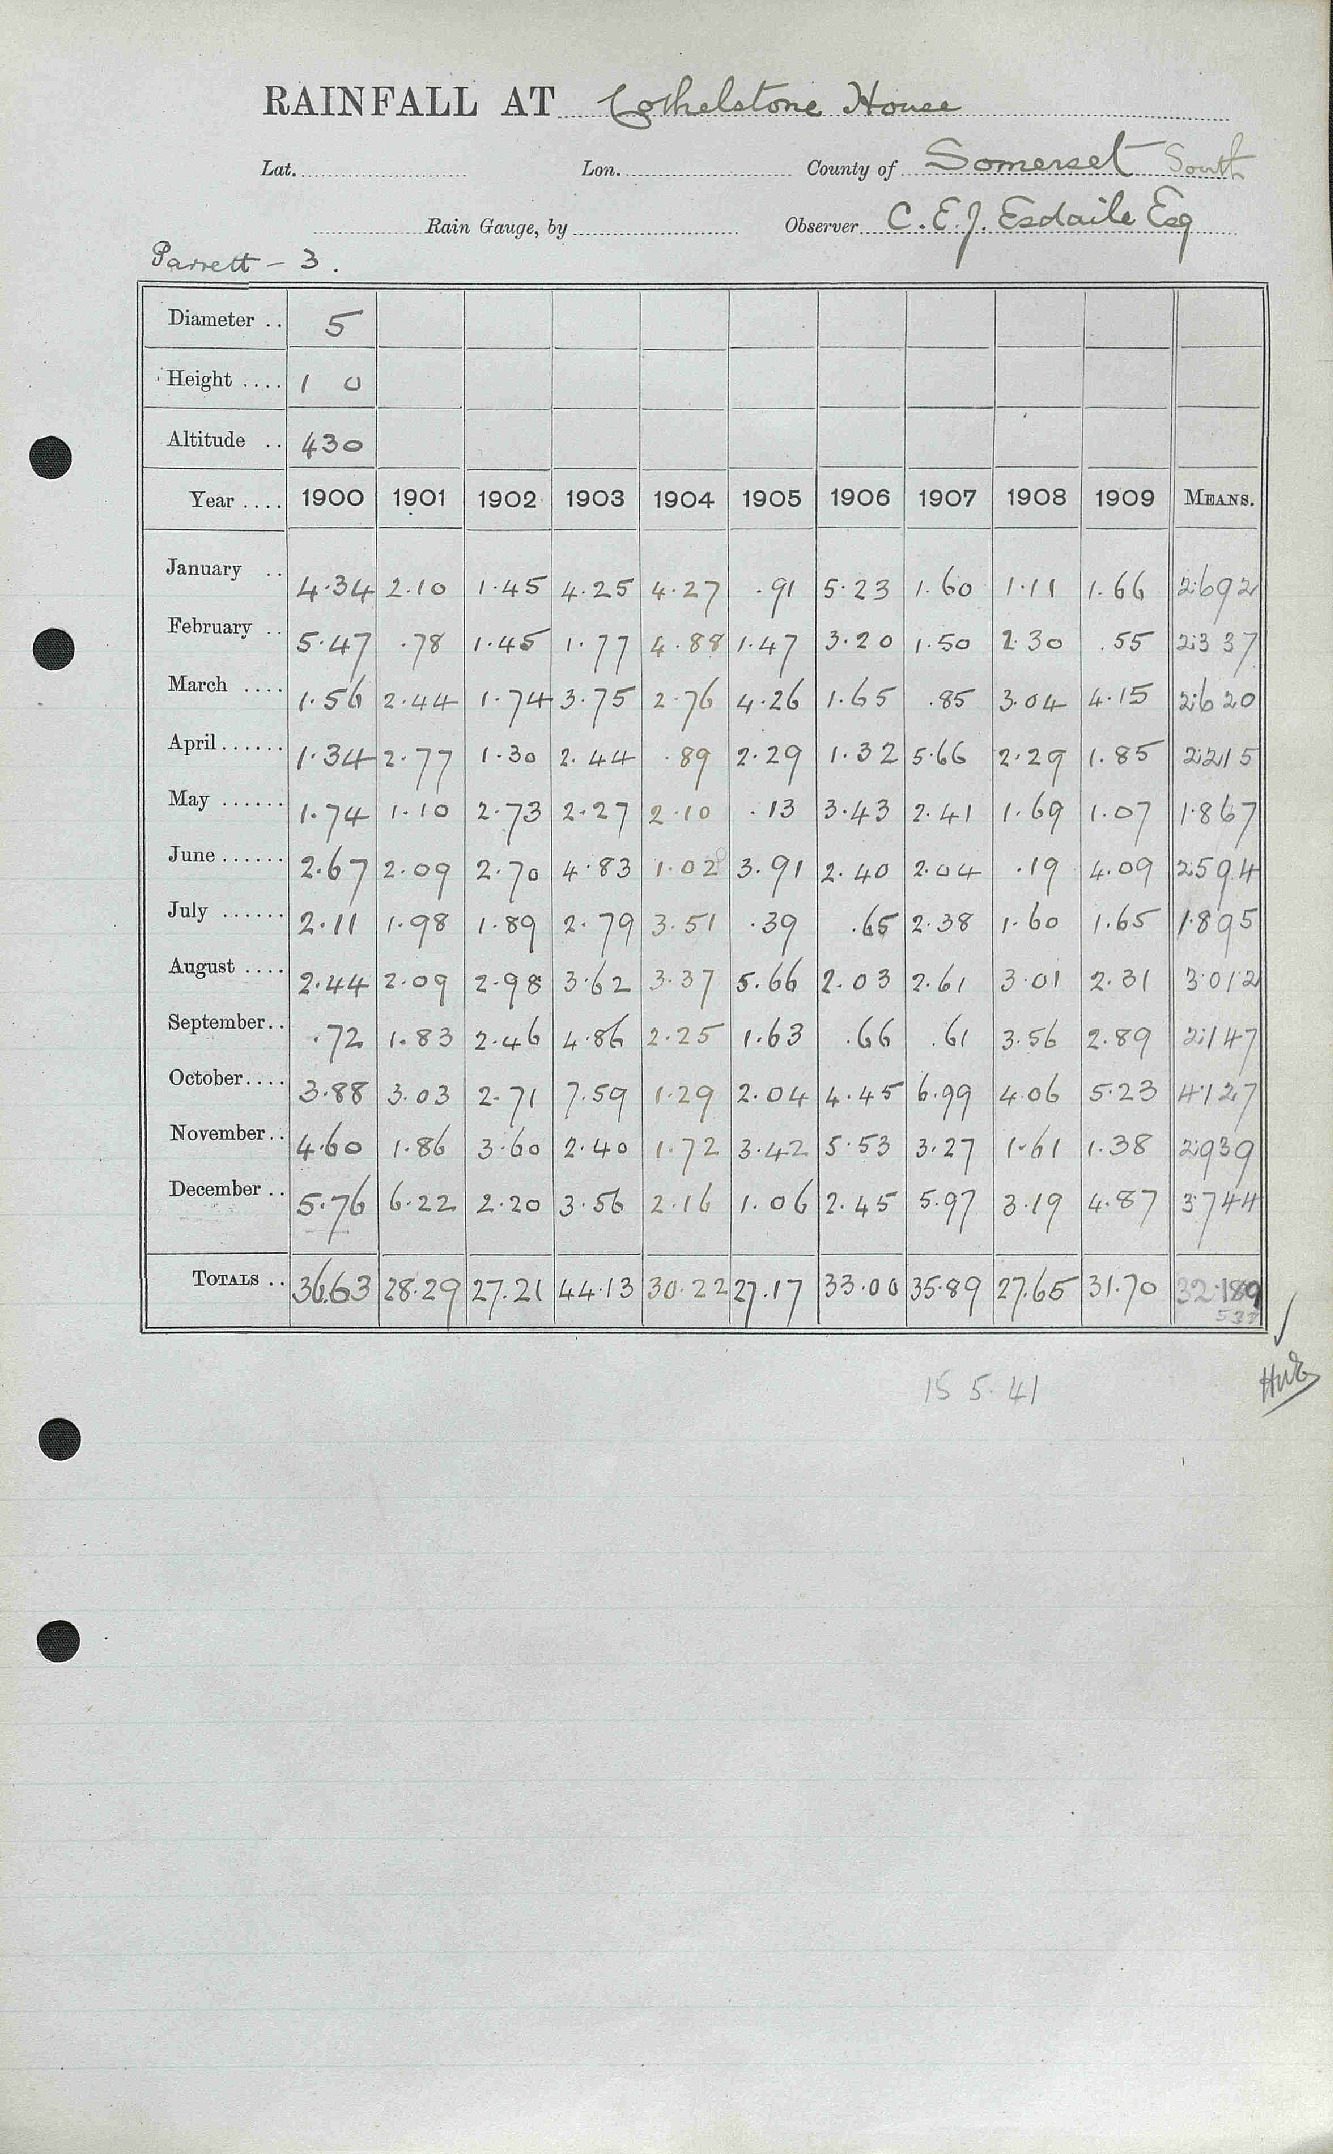 RAINFALL AT Cothelstone House
Lat. Lon. County of Somerset South
Rain Gauge, by Observer C. E. J. Esdaile Esq
Parrett - 3.
Diameter .. 5
Height .... 1 0
Altitude .. 430
Year .... 1900 1901 1902 1903 1904 1905 1906 1907 1908 1909 MEANS.
January .. 4.34 2.10 1.45 4.25 4.27 .91 5.23 1.60 1.11 1.66 2.692
February .. 5.47 .78 1.45 1.77 4.88 1.47 3.20 1.50 2.30 .55 2.337
March .... 1.56 2.44 1.74 3.75 2.76 4.26 1.65 .85 3.04 4.15 2.620
April ...... 1.34 2.77 1.30 2.44 .89 2.29 1.32 5.66 2.29 1.85 2.215
May ...... 1.74 1.10 2.73 2.27 2.10 .13 3.43 2.41 1.69 1.07 1.867
June ...... 2.67 2.09 2.70 4.83 1.02 3.91 2.40 2.04 .19 4.09 2.594
July ...... 2.11 1.98 1.89 2.79 3.51 .39 .65 2.38 1.60 1.65 1.895
August .... 2.44 2.09 2.98 3.62 3.37 5.66 2.03 2.61 3.01 2.31 3.012
September .. .72 1.83 2.46 4.86 2.25 1.63 .66 .61 3.56 2.89 2.147
October .... 3.88 3.03 2.71 7.59 1.29 2.04 4.45 6.99 4.06 5.23 4.127
November .. 4.60 1.86 3.60 2.40 1.72 3.42 5.53 3.27 1.61 1.38 2.939
December .. 5.76 6.22 2.20 3.56 2.16 1.06 2.45 5.97 3.19 4.87 3.744
TOTALS .. 36.63 28.29 27.21 44.13 30.22 27.17 33.00 35.89 27.65 31.70 32.189
15 5. 41